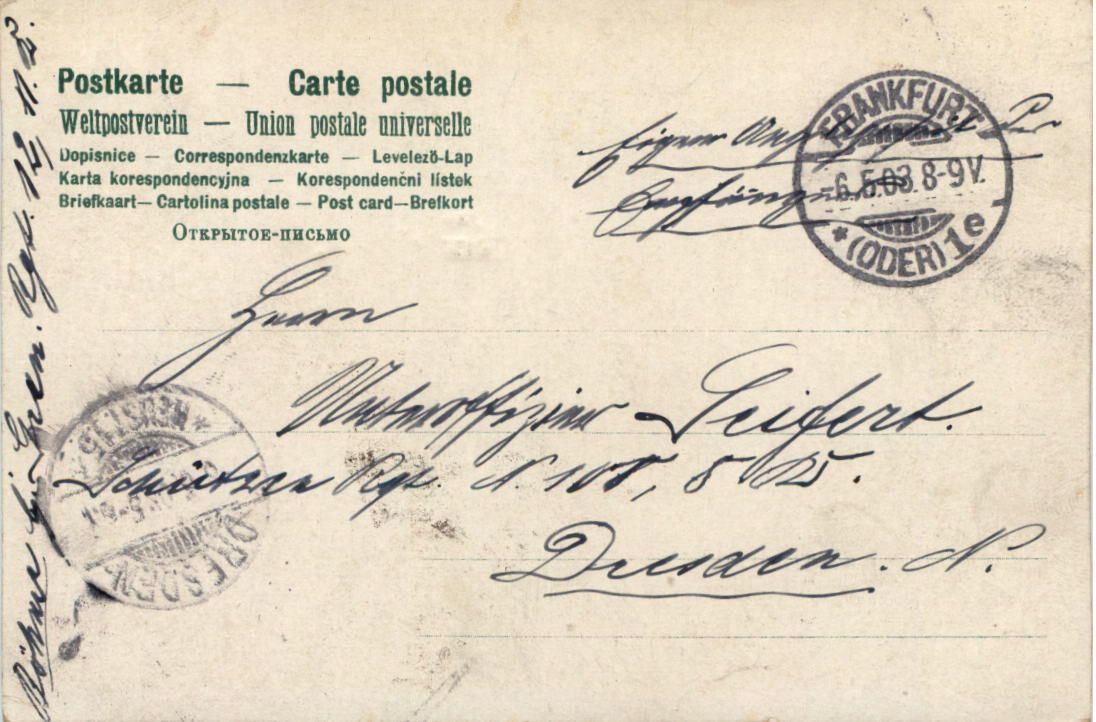 Postkarte — Carte postale
Weltpostverein — Union postale universelle
Dopisnice — Correspondenzkarte — Levelező-Lap
Karta korespondencyjna — Korespondenčni lístek
Briefkaart — Cartolina postale — Post card — Brefkort
Открытое-письмо
Eigene Angelegenheit des
Empfängers
FRANKFURT
-6.5.03 8-9V.
* (ODER) 1e
Herrn
Unteroffizier Seifert.
Schützen Rgt. N. 108, 5
Dresden. N.
DRESDEN
NEUST.
Gren. Rgt. 12